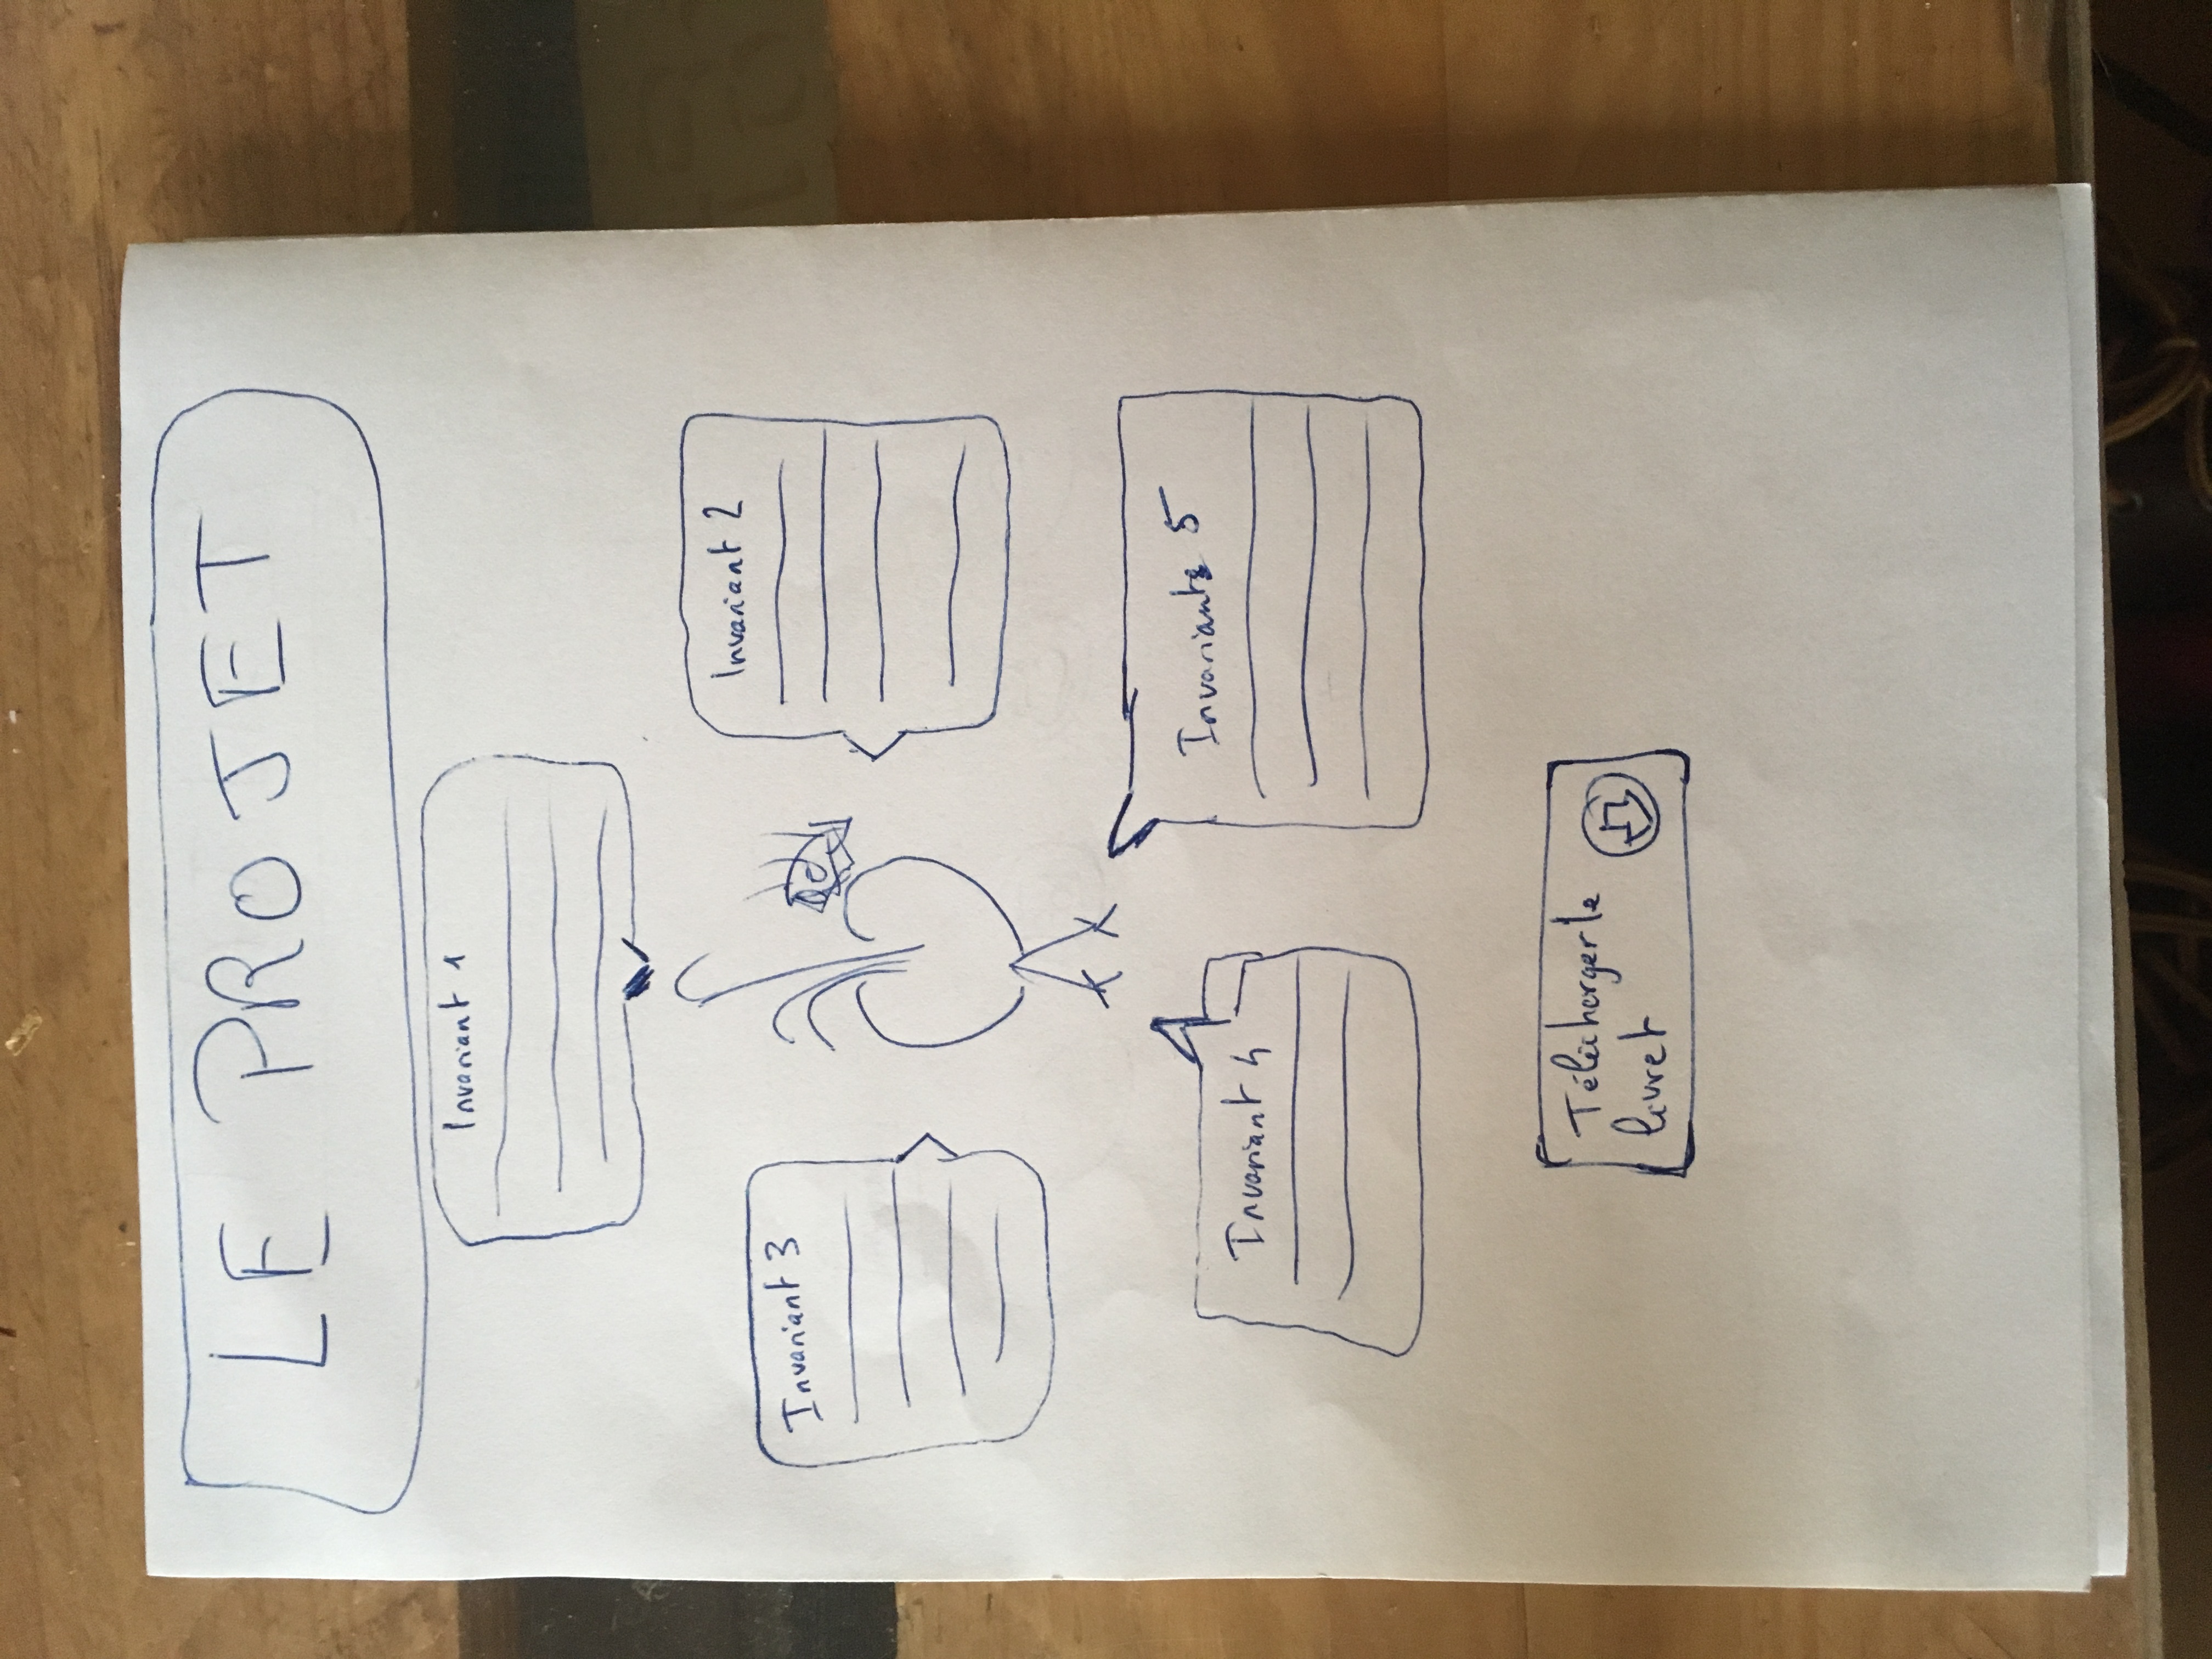 LE PROJET
Invariant 1
Invariant 2
Invariant 3
Invariant 4
Invariants 5
Télécharger le
livret